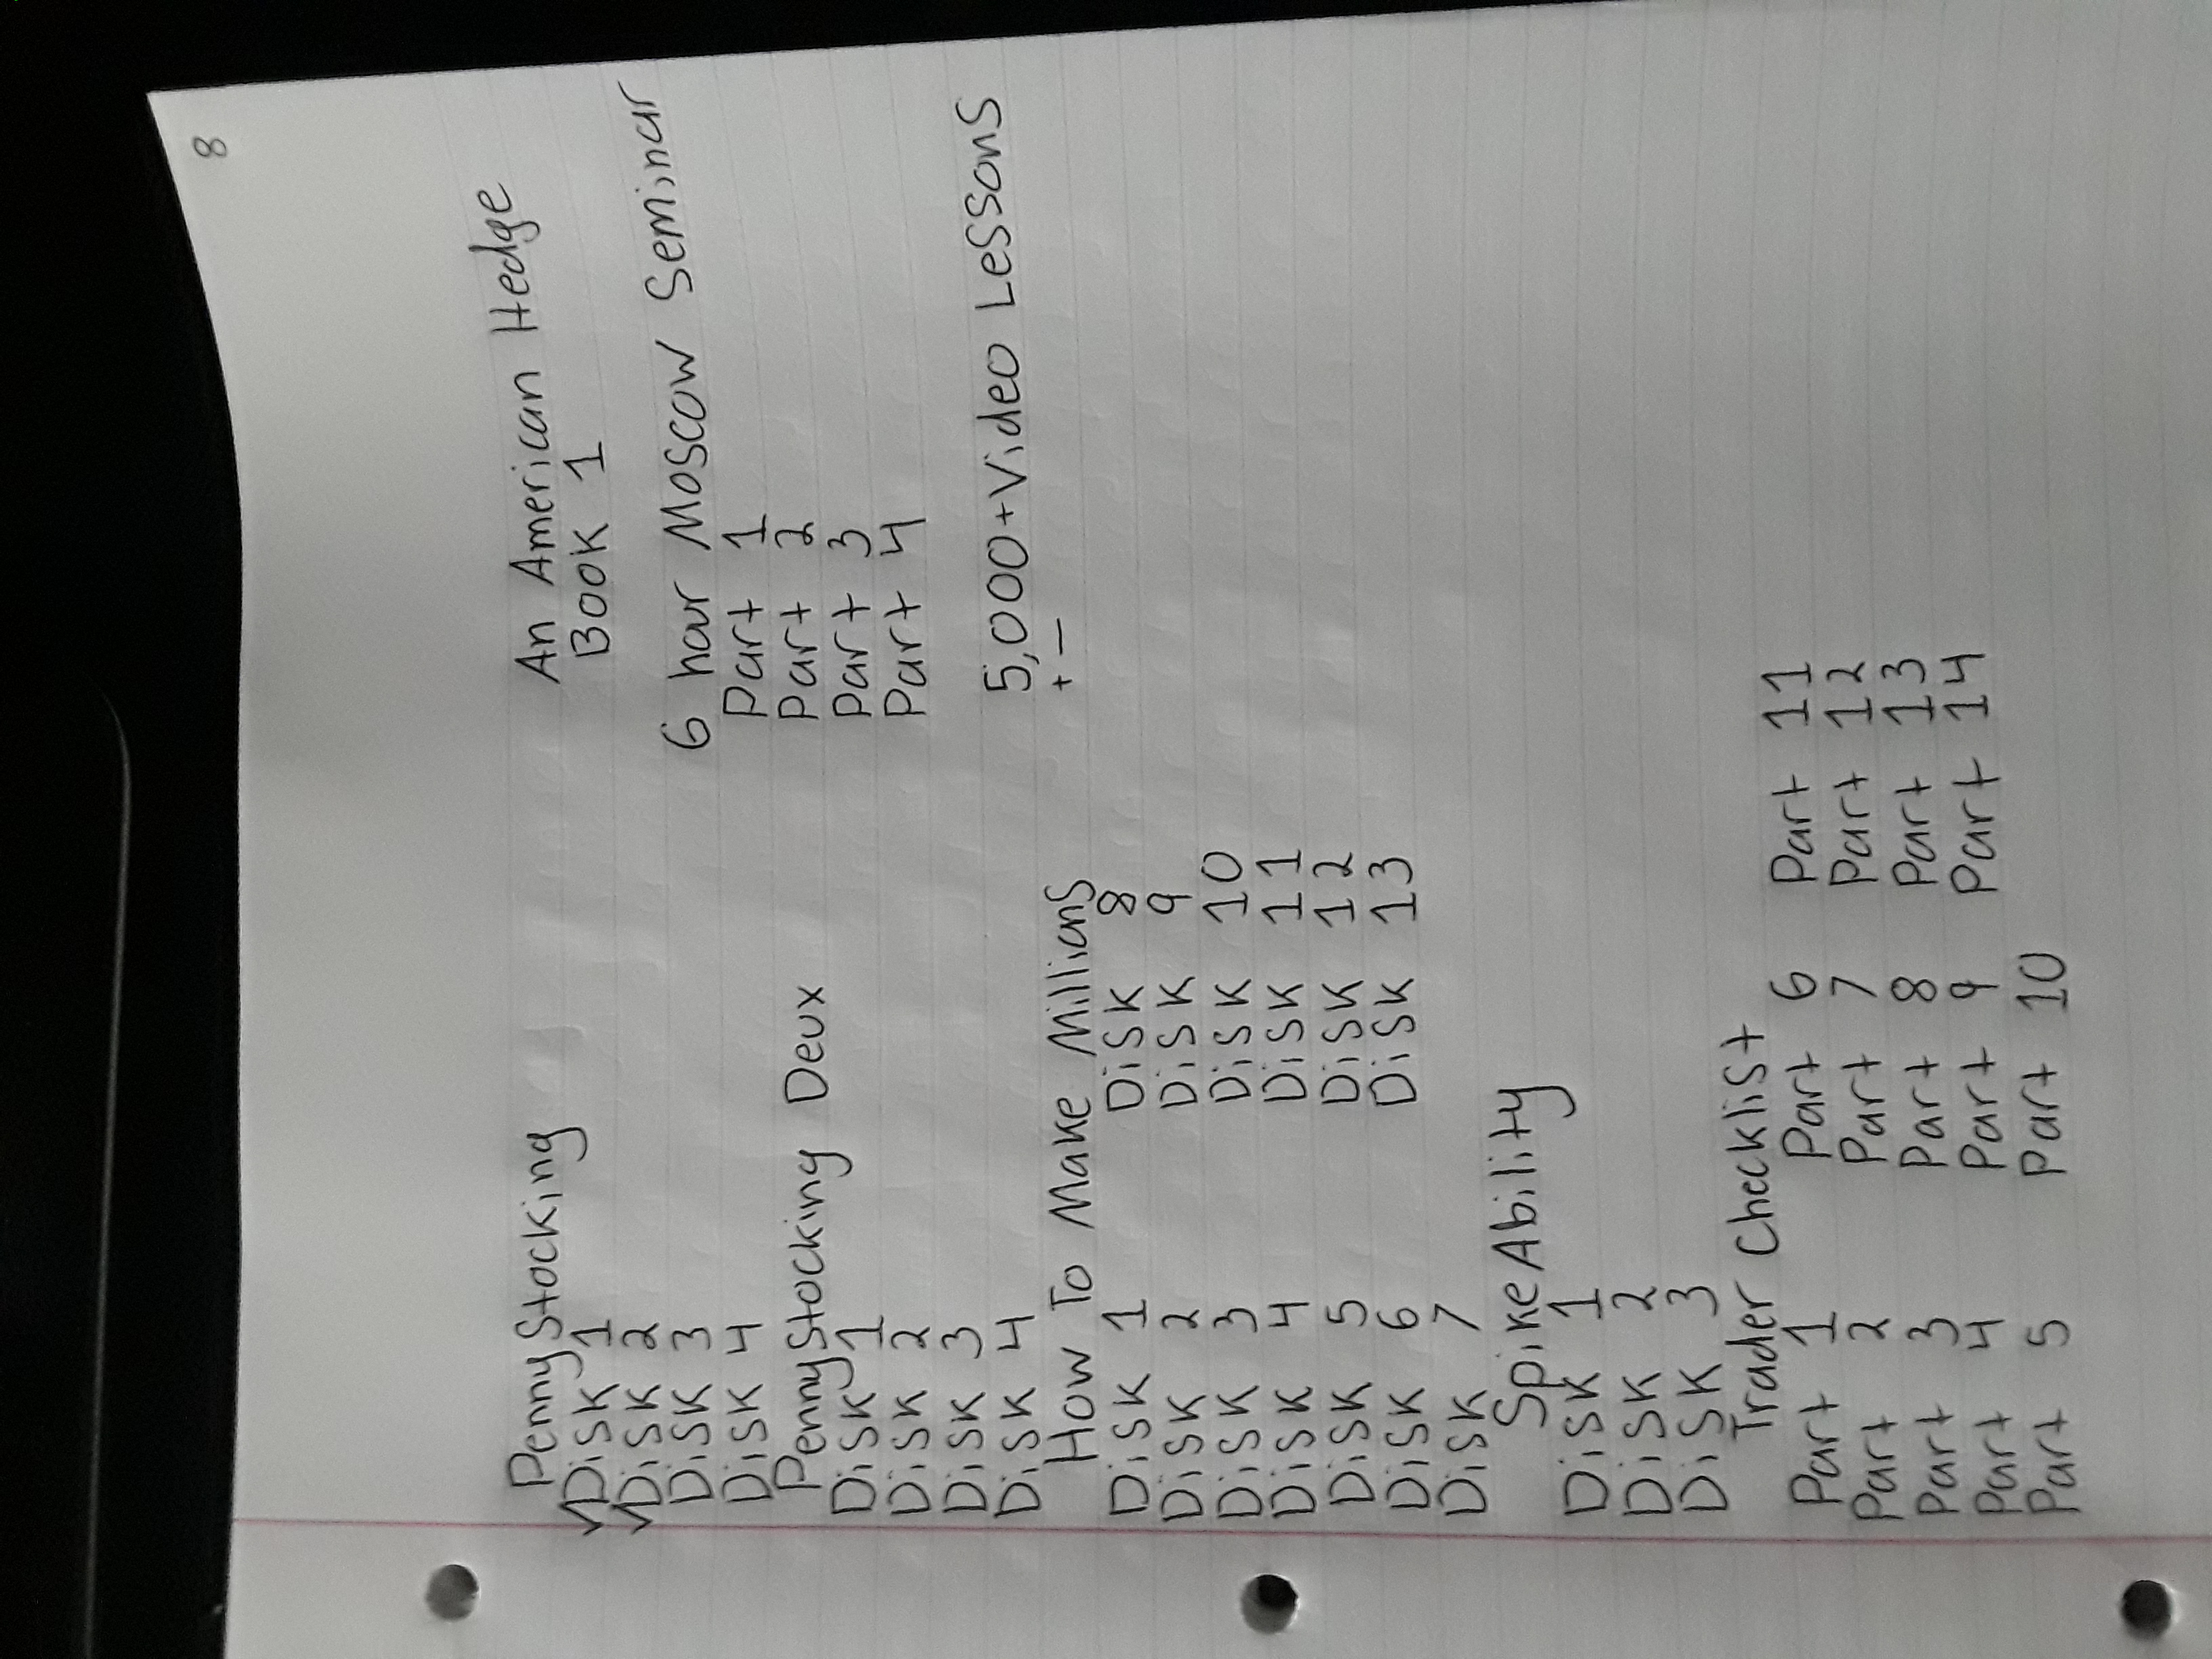 8
PennyStocking
✓Disk 1
✓Disk 2
Disk 3
Disk 4
PennyStocking Deux
Disk 1
Disk 2
Disk 3
Disk 4
How To Make Millions
Disk 1 Disk 8
Disk 2 Disk 9
Disk 3 Disk 10
Disk 4 Disk 11
Disk 5 Disk 12
Disk 6 Disk 13
Disk 7
SpikeAbility
Disk 1
Disk 2
Disk 3
Trader Checklist
Part 1 Part 6 Part 11
Part 2 Part 7 Part 12
Part 3 Part 8 Part 13
Part 4 Part 9 Part 14
Part 5 Part 10
An American Hedge
Book 1
6 hour Moscow Seminar
Part 1
Part 2
Part 3
Part 4
5,000+Video Lessons
+ —